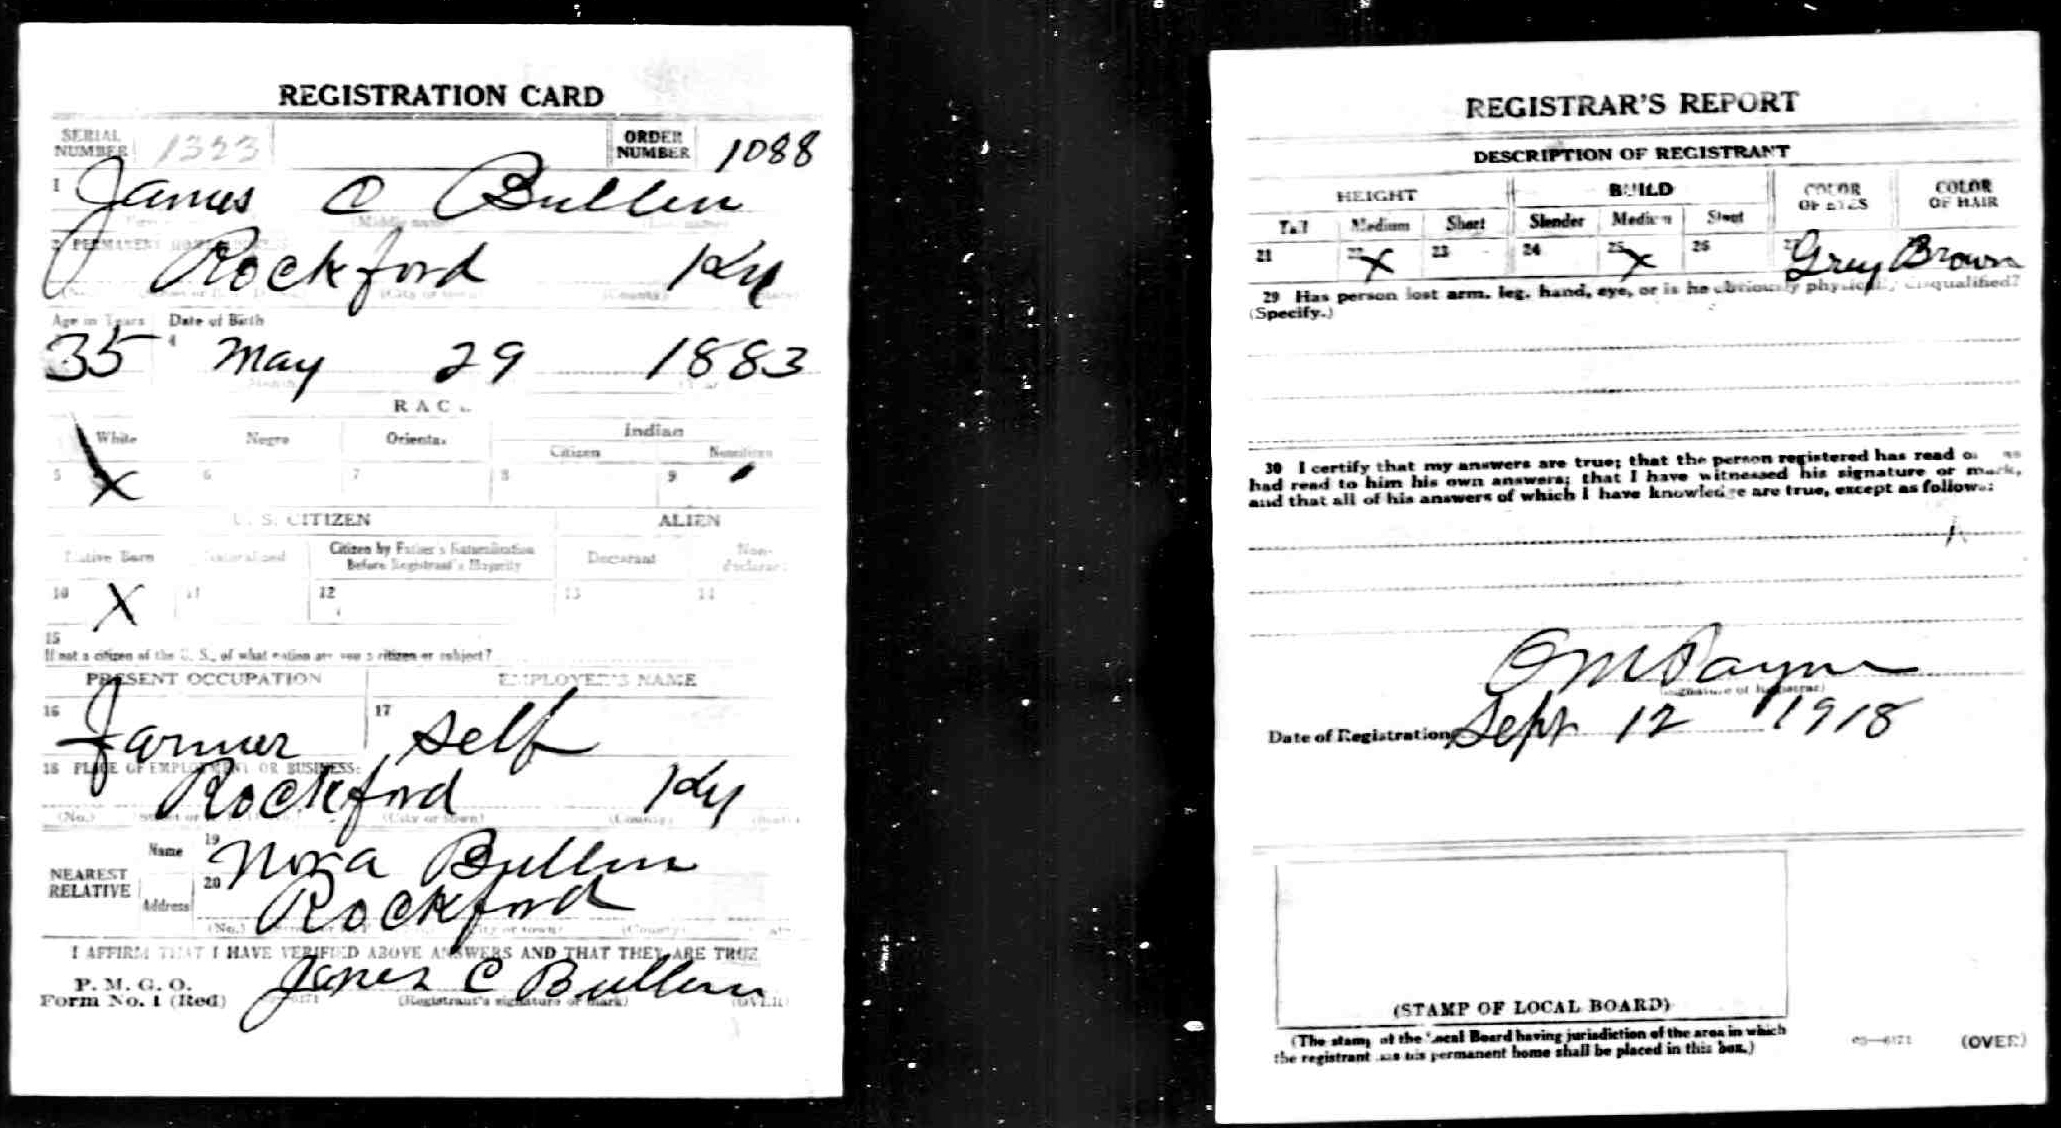 REGISTRATION CARD
SERIAL NUMBER 1323 ORDER NUMBER 1088
1 James C Bullin
2 PERMANENT HOME ADDRESS
Rockford Ky
(City or town) (County)
Age in Years Date of Birth
35 4 May 29 1883
RACE
White Negro Oriental Indian
Citizen Noncitizen
5 X 6 7 8 9
U. S. CITIZEN ALIEN
Native Born Naturalized Citizen by Father's Naturalization Before Registrant's Majority Declarant Non-declarant
10 X 11 12 13 14
15
If not a citizen of the U. S., of what nation are you a citizen or subject?
PRESENT OCCUPATION EMPLOYER'S NAME
16 Farmer 17 self
18 PLACE OF EMPLOYMENT OR BUSINESS:
Rockford Ky
(No.) (City or town) (County) (State)
NEAREST RELATIVE
Name 19 Nora Bullin
Address 20 Rockford
(No.) (City or town) (County)
I AFFIRM THAT I HAVE VERIFIED ABOVE ANSWERS AND THAT THEY ARE TRUE
P. M. G. O.
Form No. 1 (Red) James C Bullin
(Registrant's signature or mark) (OVER)
REGISTRAR'S REPORT
DESCRIPTION OF REGISTRANT
HEIGHT BUILD COLOR OF EYES COLOR OF HAIR
Tall Medium Short Slender Medium Stout
21 22 X 23 24 25 X 26 27 Grey Brown
29 Has person lost arm, leg, hand, eye, or is he obviously physically disqualified?
(Specify.)
30 I certify that my answers are true; that the person registered has read or has
had read to him his own answers; that I have witnessed his signature or mark,
and that all of his answers of which I have knowledge are true, except as follows:
O M Payne
(Signature of Registrar)
Date of Registration Sept 12 1918
(STAMP OF LOCAL BOARD)
(The stamp of the Local Board having jurisdiction of the area in which
the registrant has his permanent home shall be placed in this box.)
03—6171 (OVER)